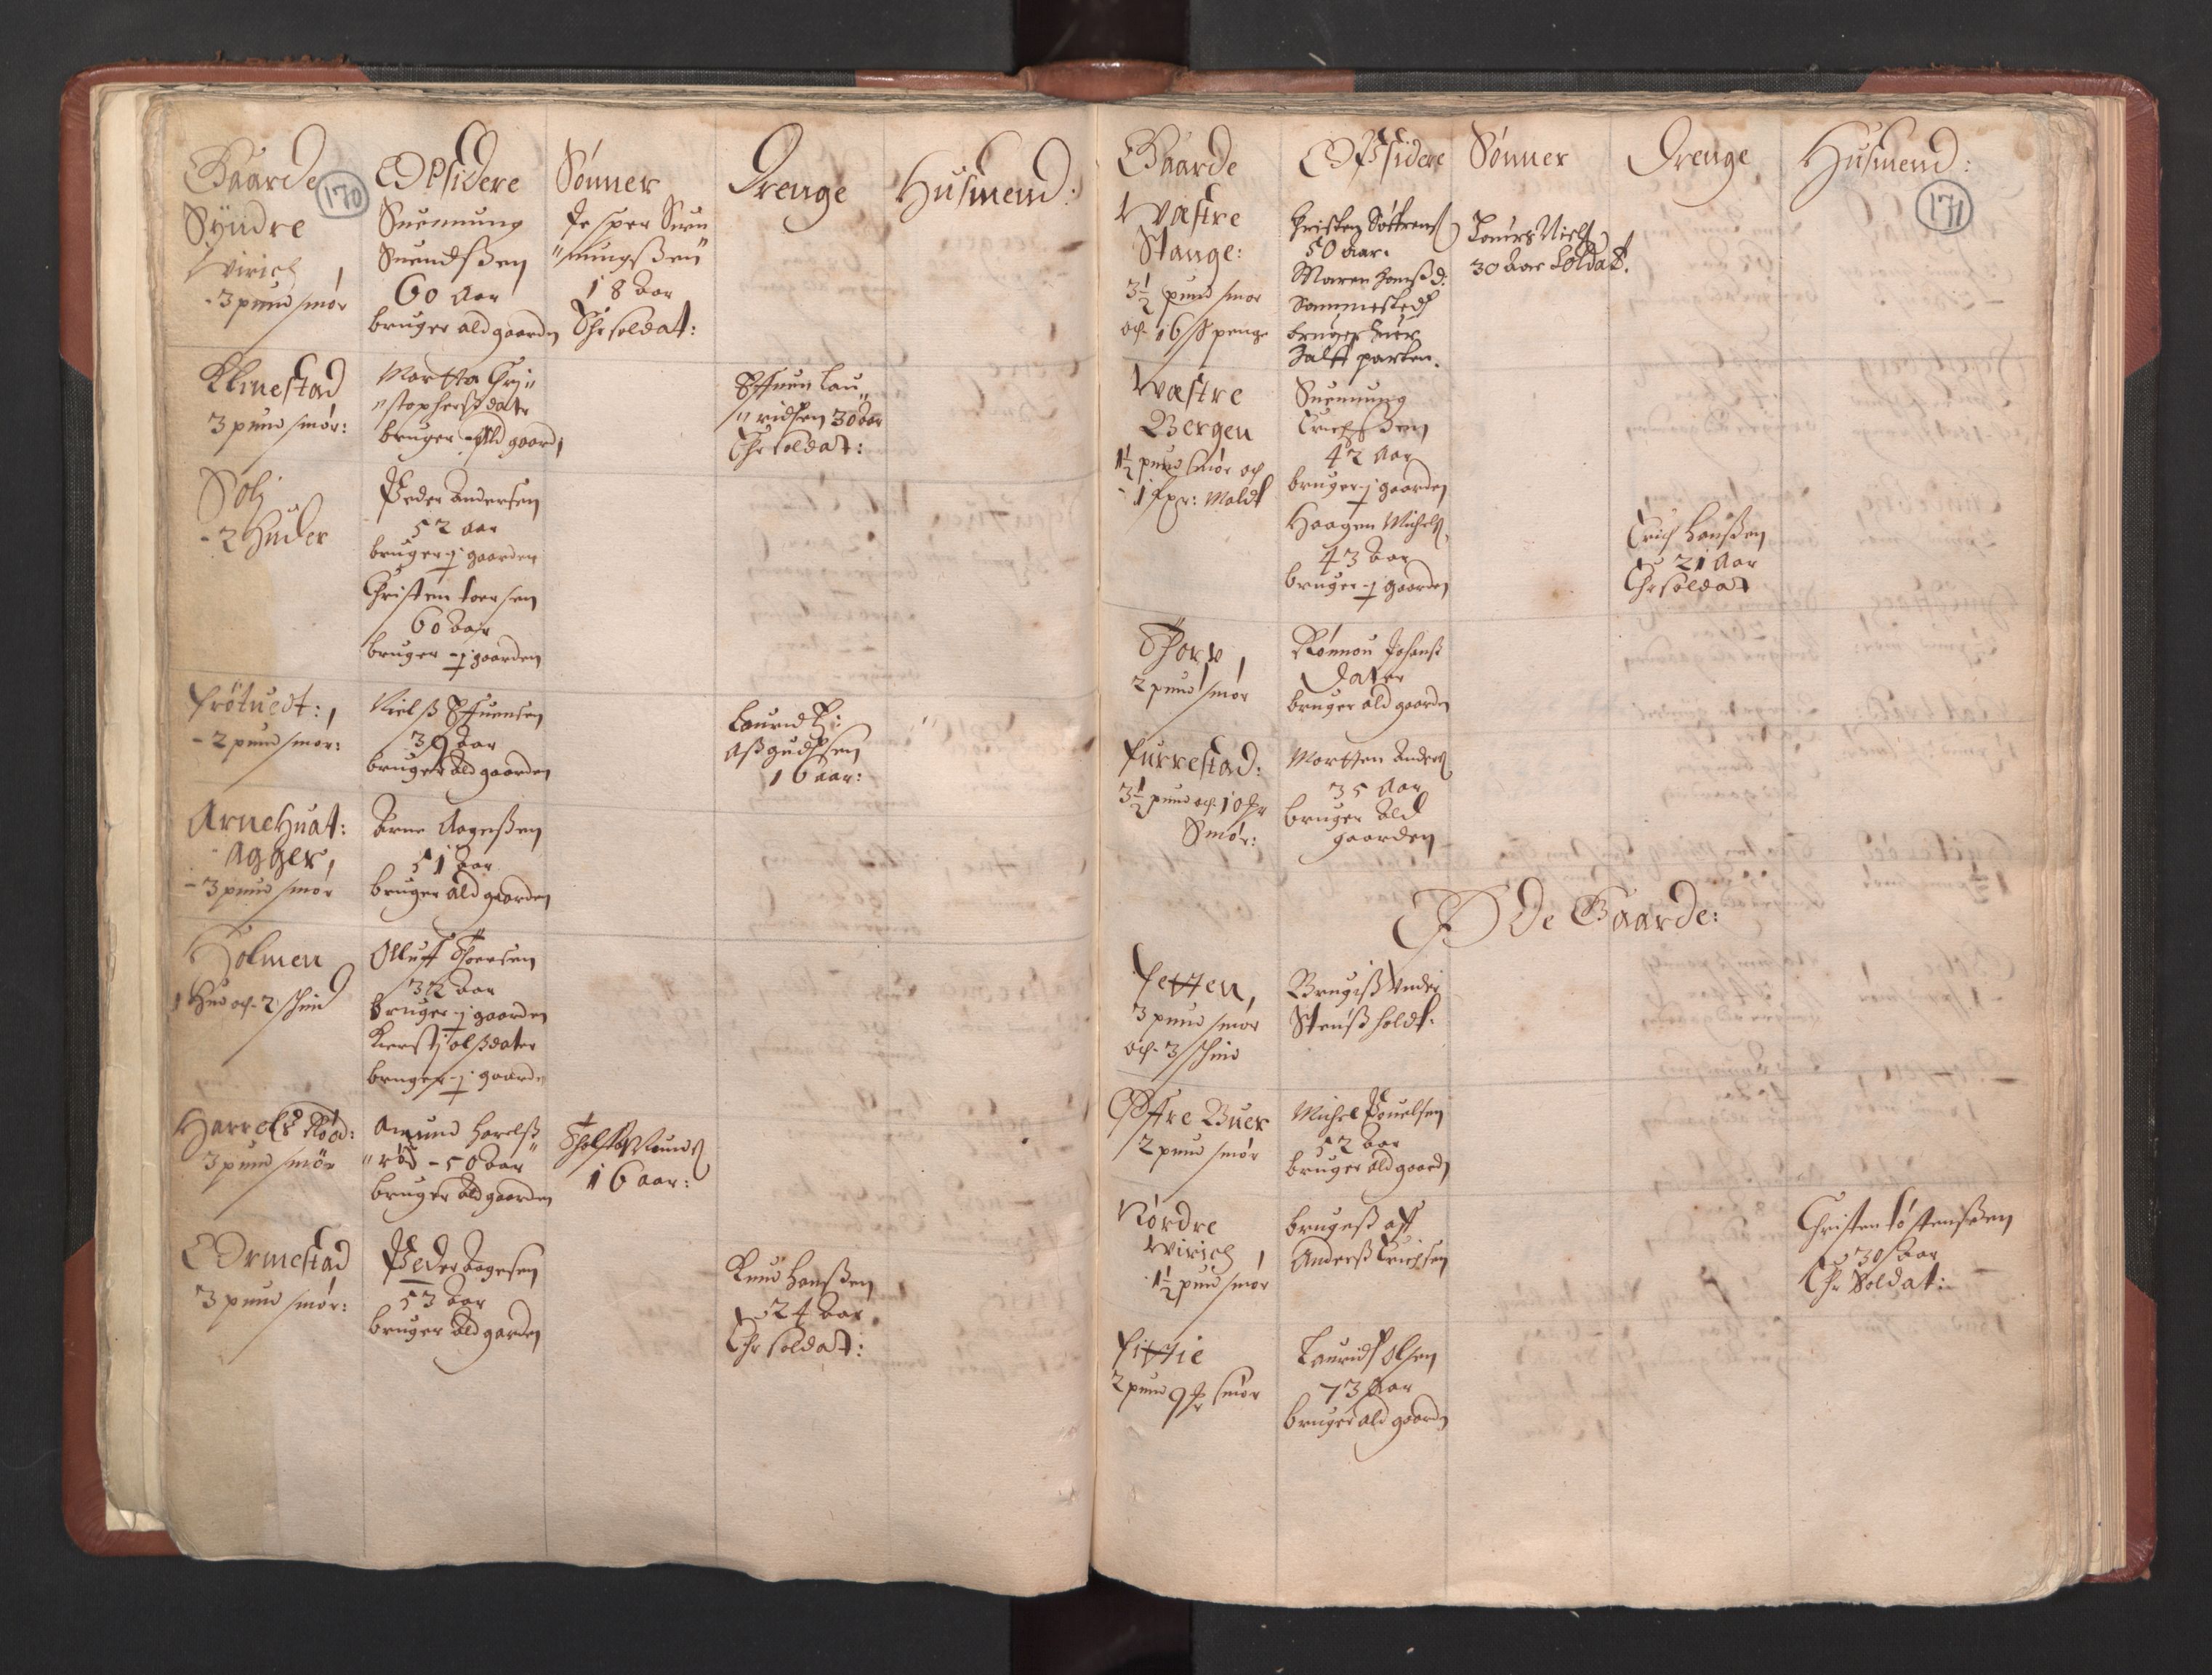 170
Gaarde
Opsidere
Sønner
Drenge
Husmend:
Syndre
Virich
- 3 pund smør
Suennung
Suendsßen
60 Aar
bruger ald gaarden
Jesper Suen
"nungsßen"
18 Aar
Er soldat:
Klinestad
3 pund smør:
Martta Chri"
"stophersdater
bruger Ald gaarden
Effuen Lau"
"ridsen 30 Aar
Er soldat:
Solj
- 2 Huder
Peder Andersen
52 Aar
bruger ½ gaarden
Christen Toersen
60 Aar
bruger ½ gaarden
Frötuedt:
- 2 pund smør:
Nielß Effuensen
39 Aar
bruger ald gaarden
Lauridtz:
Aßgudsen
16 aar:
Arnehuat:
Agger,
- 3 pund smør
Arne Aageßen
51 Aar
bruger ald gaarden
Holmen
1 Hud och 2 schind
Olluff Thoersen
32 Aar
bruger ½ gaarden
Kiersti Olßdater
bruger ½ gaarden
Harrels Röd:
3 pund smör
Amund Harelß"
"röd - 50 Aar
bruger ald gaarden
16 aar:
Ormestad
3 pund smør:
Peder Aagesen
53 Aar
bruger Ald garden
Knud Hanßen
24 Aar
Er soldat:
171
Gaarde
Opsidere
Sønner
Drenge
Husmend:
Wæstre
Stange:
3½ pund smør
och 16 ß penge
50 Aar.
Maren Hanßd.
Sammested
bruger huer
Halff parten.
Laurs Nielß
30 Aar Soldat.
Wæstre
Bergen
1½ pund smør och
Suennung
Erichsßen
42 Aar
bruger ½ gaarden
Haagen Michels
43 Aar
bruger ½ gaarden
Erich Hanßen
21 Aar
Er soldat
Thorp,
2 pund smør
Rönnou Johanß
dater
bruger ald gaarden
Furrestad:
3½ pund och 10 mr
Smör:
Mortten Anders
35 Aar
bruger Ald
gaarden
Øde Gaarde:
Fetten,
3 pund smør
och 3 schind
Brugiß under
Stenßholdt.
Øffre Buer
2 pund smør
Michel Pouelsen
52 Aar
bruger ald gaarden
Nordre
Virich,
1½ pund smør
brugeß aff
Anderß Erichsen
Christen Töstensßen
30 Aar
Er Soldat:
Fittie
2 pund 9 mr smør
Lauridß Olsen
73 Aar
bruger ald gaarden